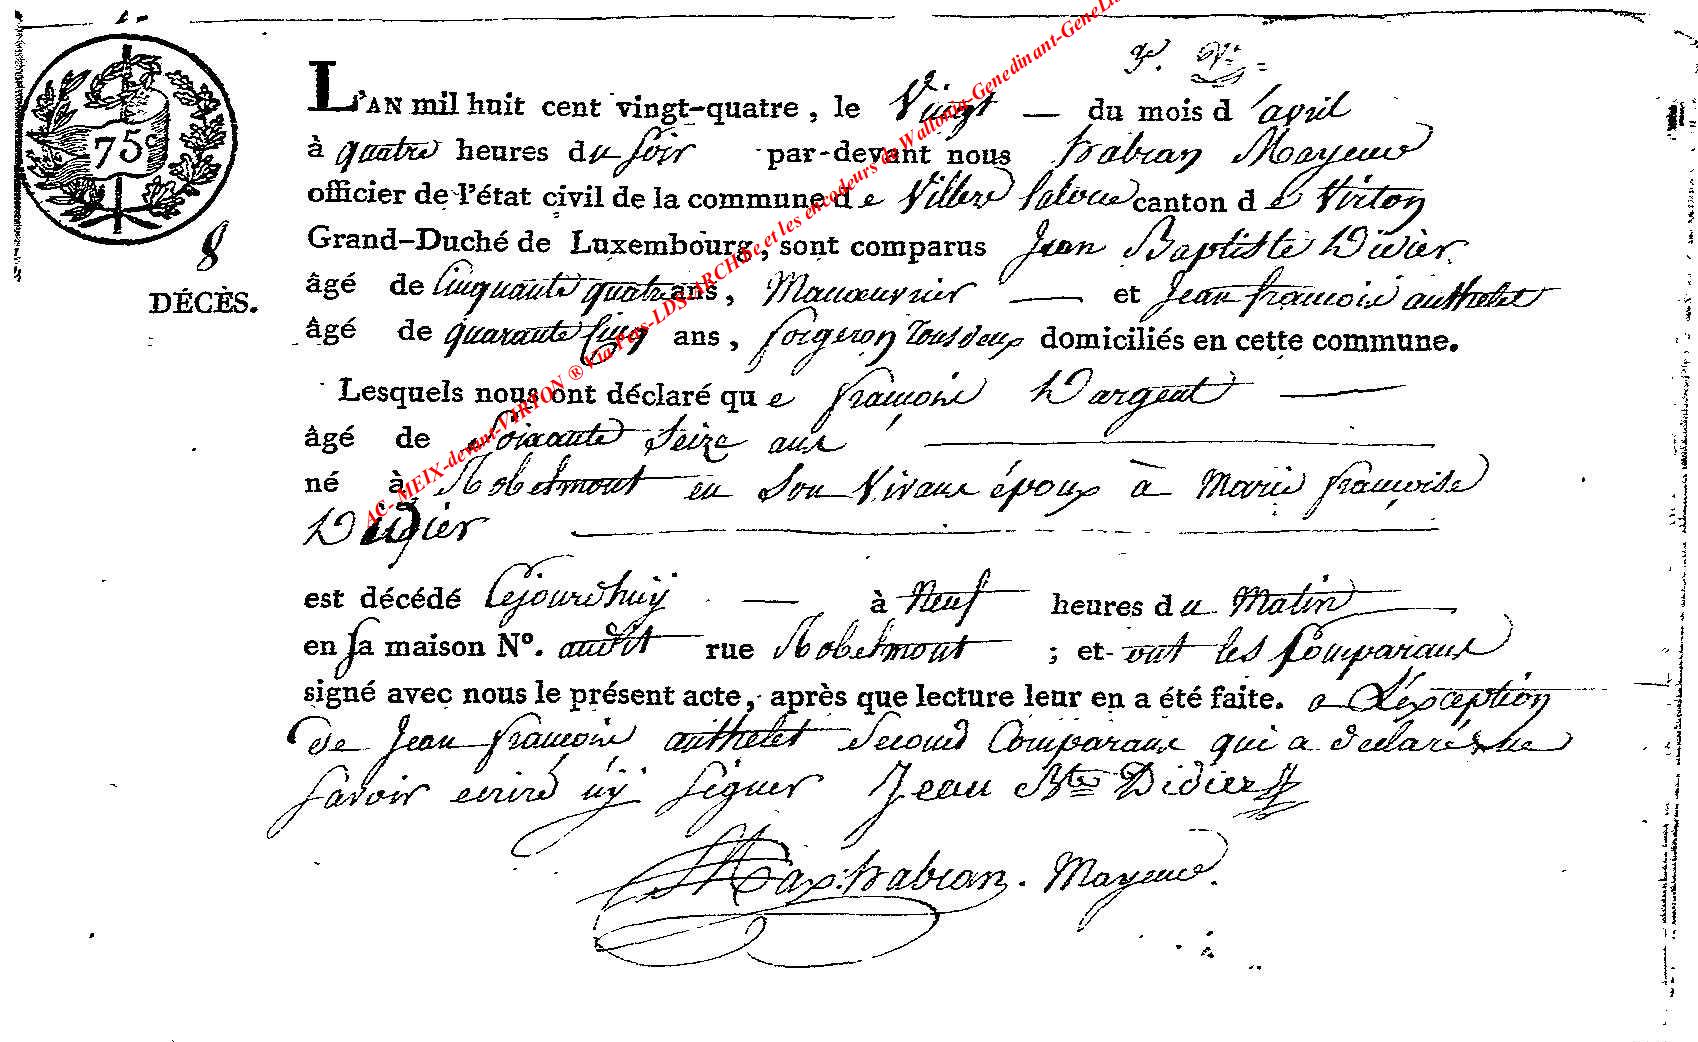 75c
8
DÉCÈS.
L'AN mil huit cent vingt-quatre, le Vingt — du mois d'avril
à quatre heures du soir par-devant nous habran Mayeur
officier de l'état civil de la commune de Villers laloue canton de Virton
Grand-Duché de Luxembourg, sont comparus Jean Baptiste Didier
âgé de Cinquante quatre ans, Manœuvrier — et Jean françois authelet
âgé de quarante Cinq ans, forgeron tous deux domiciliés en cette commune.
Lesquels nous ont déclaré que françois Dargent —
âgé de Soixante Seize ans
né à Robelmont en Son Vivant époux à Marie françoise
Didier
est décédé Cejourdhuÿ — à Neuf heures du Matin
en sa maison N°. audit rue Robelmont ; et ont les Comparant
signé avec nous le présent acte, après que lecture leur en a été faite. a L'exception
de Jean françois authelet Second Comparant qui a declaré ne
savoir ecrire nÿ Signer Jean Bte Didier
habran. Mayeur.
AC-MEIX-devant-VIRTON ® Via Pays-LDS-ARCHive et les encodeurs de Wallonia-Genedinant-GeneLu